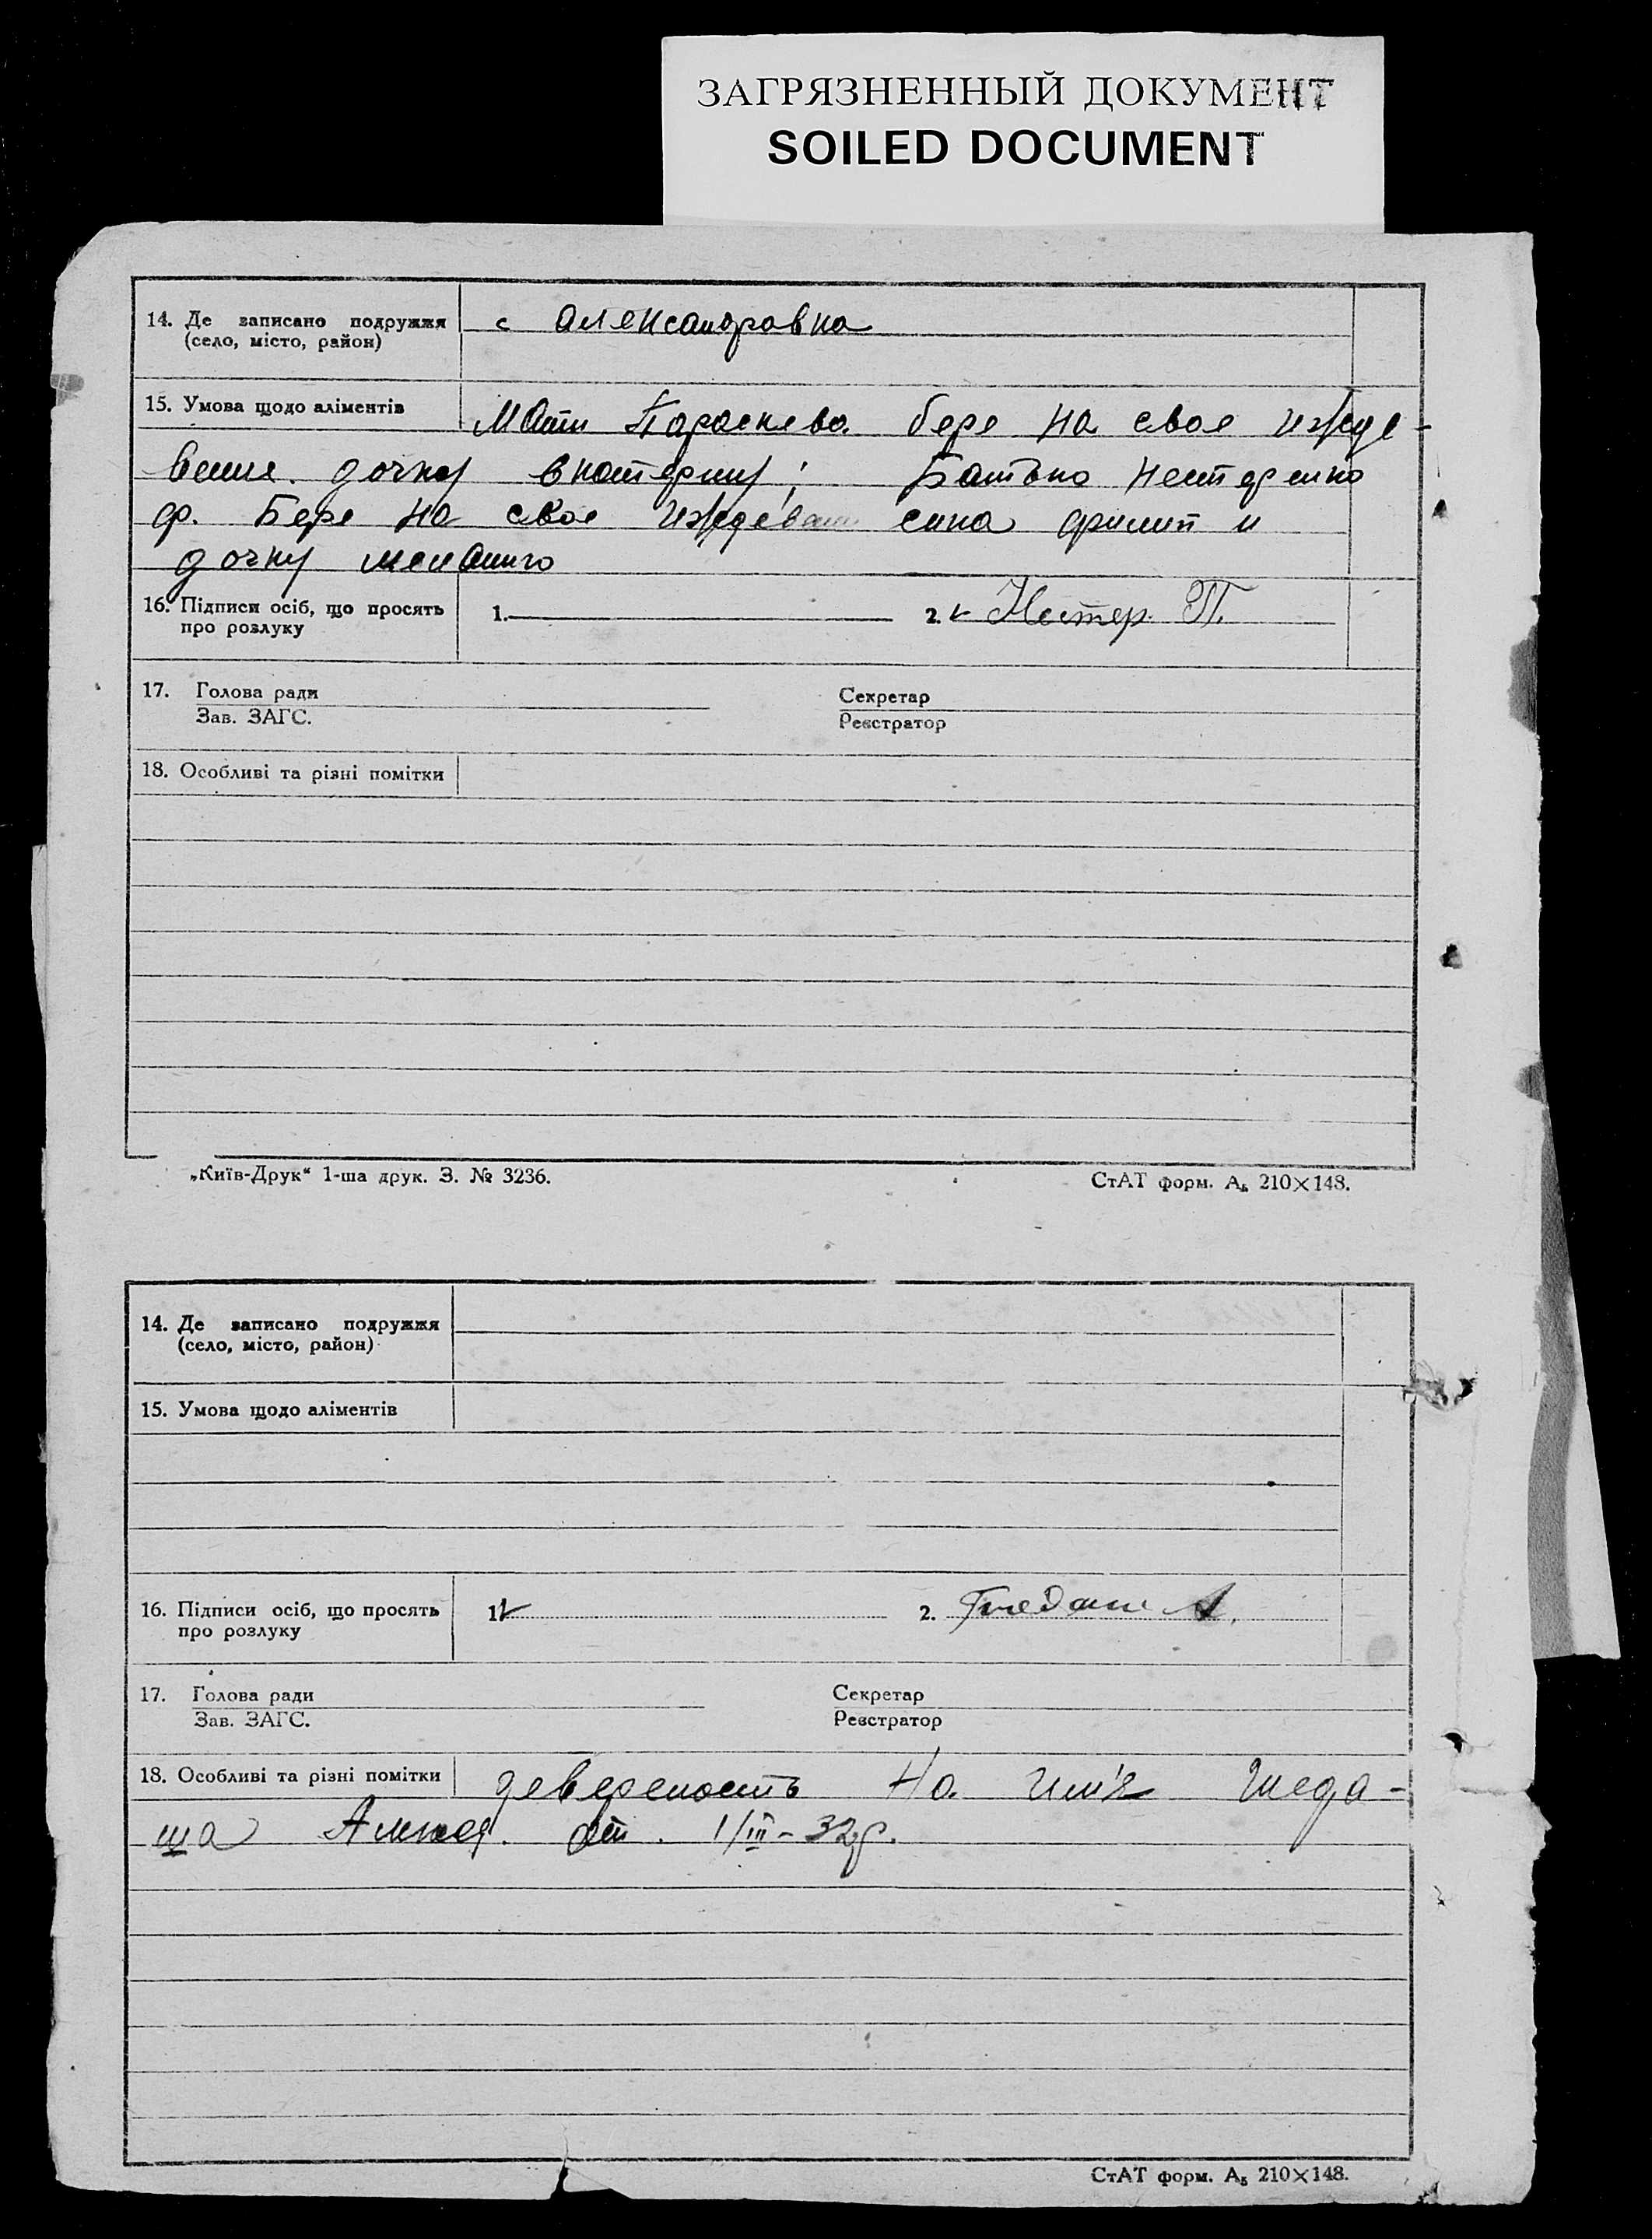 ЗАГРЯЗНЕННЫЙ ДОКУМЕНТ
SOILED DOCUMENT
14. Де записано подружжя
(село, місто, район)
с Александровка
15. Умова щодо аліментів
Мати Параскева бере на свое ижде-
вения. дочку
Батько Нестеренко
ф. Бере на свое сина филип и
дочку
16. Підписи осіб, що просять
про розлуку
1.
2. Нестер. П.
17. Голова ради
Зав. ЗАГС.
Секретар
Реєстратор
18. Особливі та різні помітки
„Київ-Друк“ 1-ша друк. З. № 3236.
СтАТ форм. А₅ 210×148.
14. Де записано подружжя
(село, місто, район)
15. Умова щодо аліментів
16. Підписи осіб, що просять
про розлуку
1.
2. А.
17. Голова ради
Зав. ЗАГС.
Секретар
Реєстратор
18. Особливі та різні помітки
на им'я
от. 1/III-32р.
СтАТ форм. А₅ 210×148.